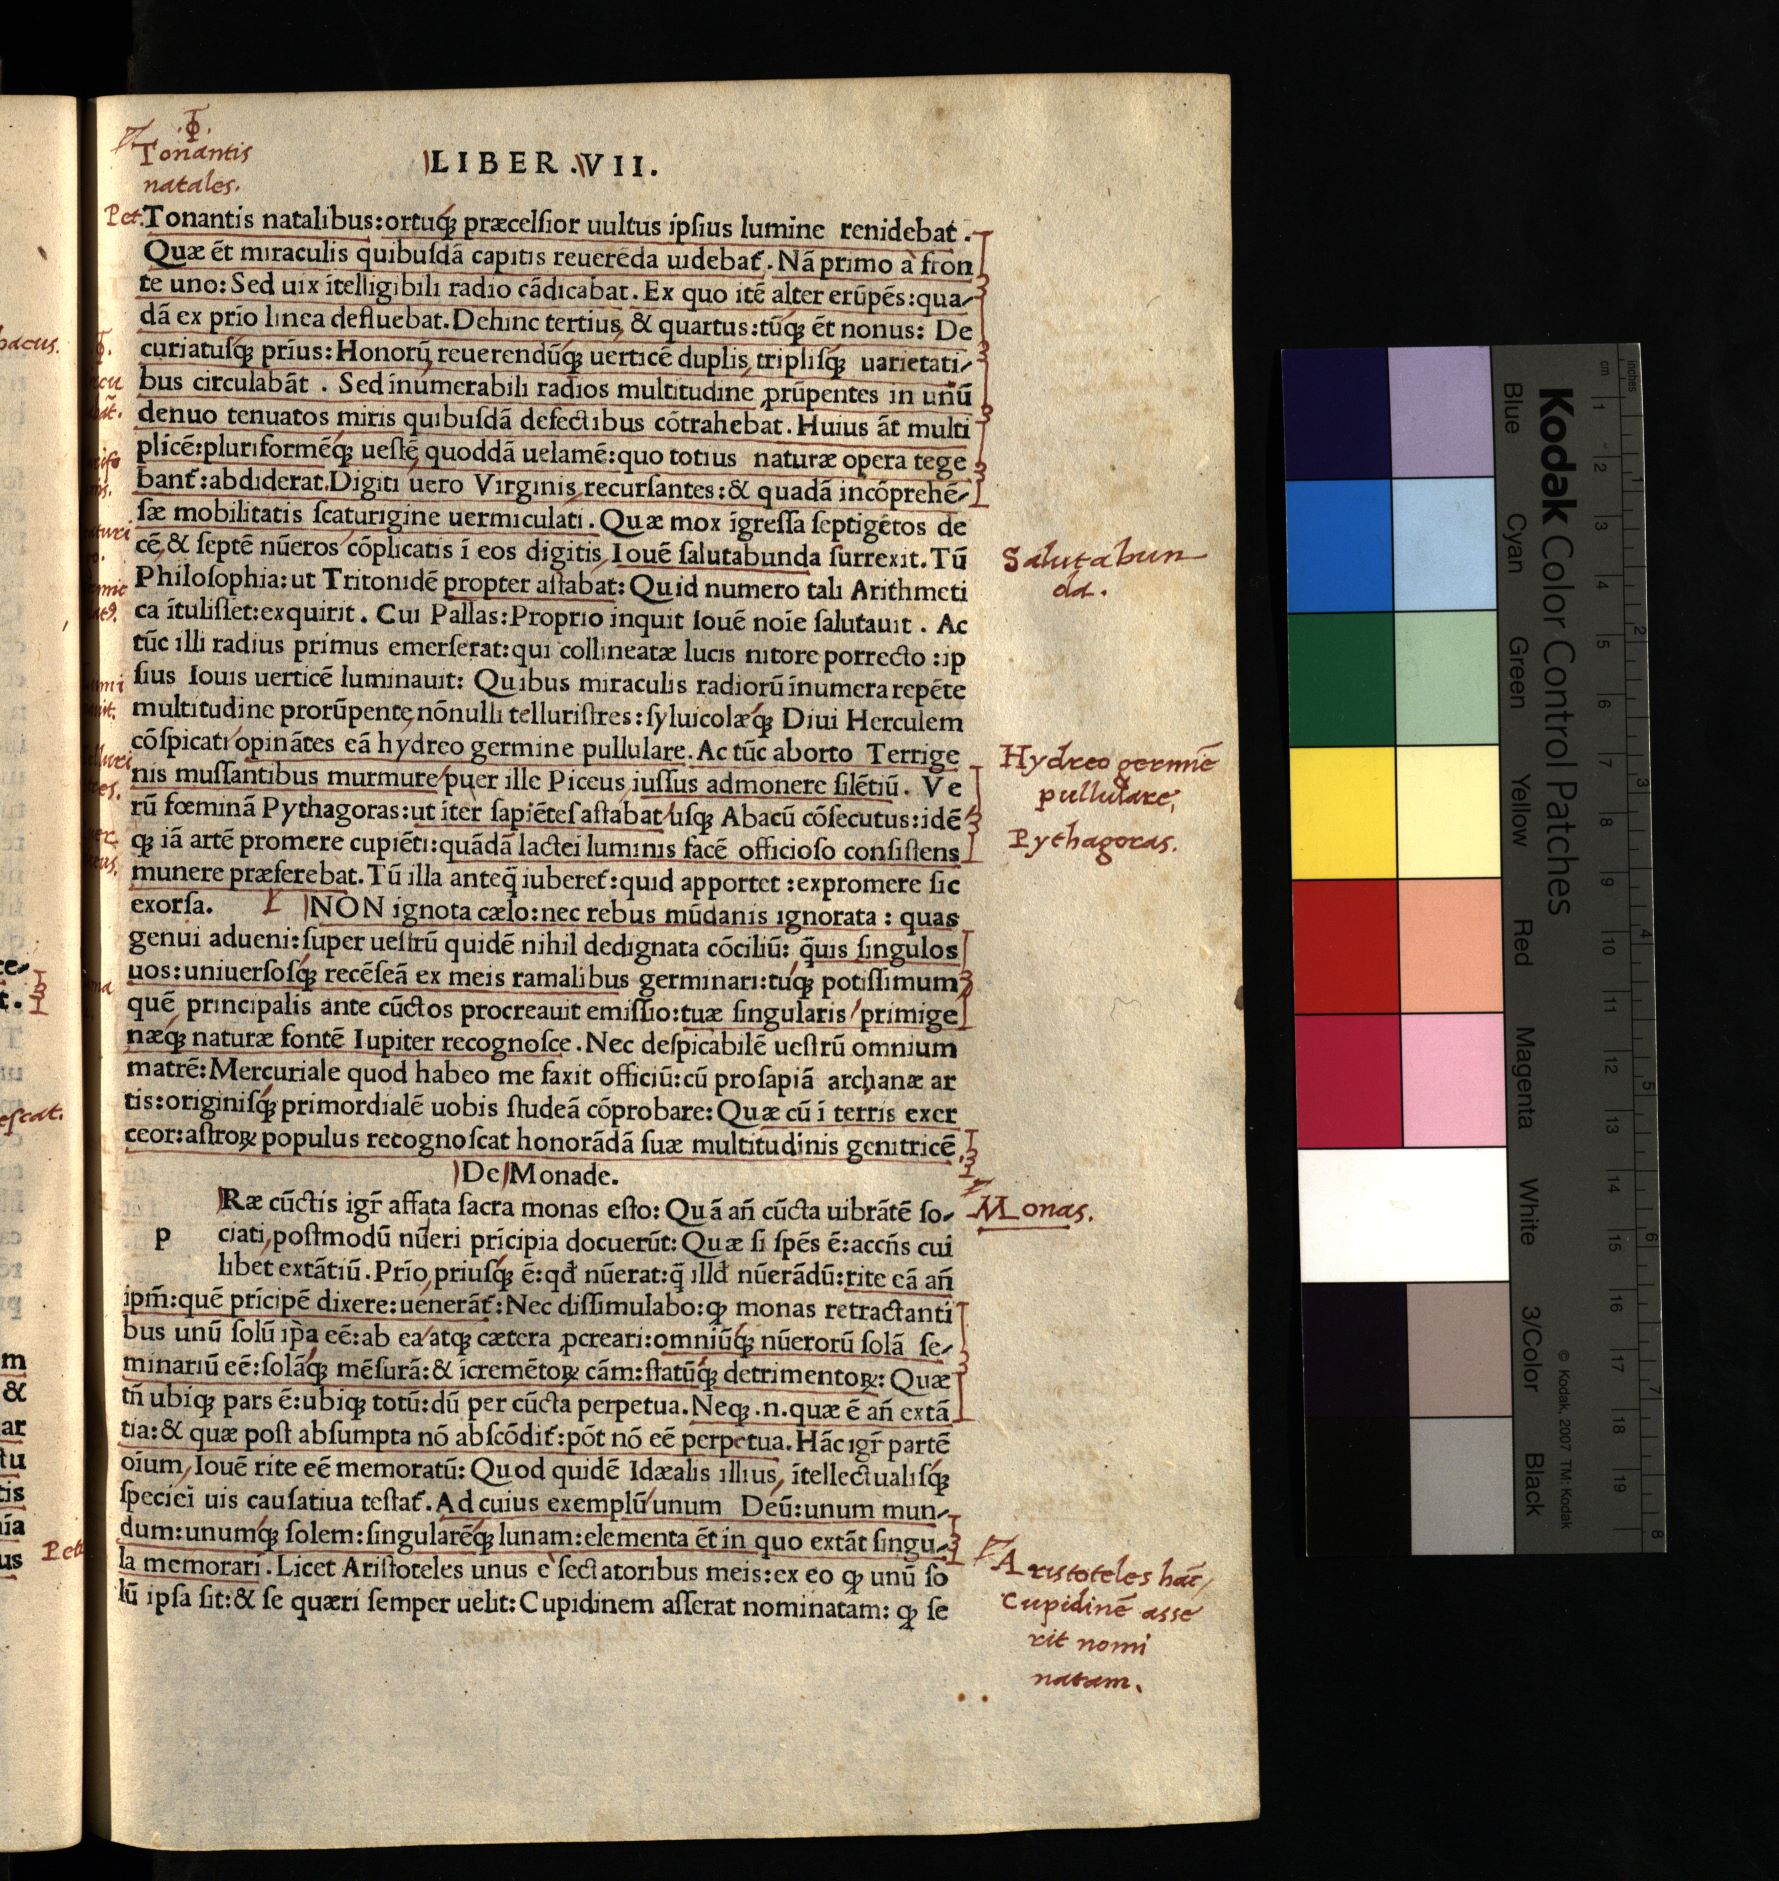 Tonantis
natales.
LIBER .VII.
Pet. Tonantis natalibus:ortuq́; præcelſior uultus ipſius lumine renidebat .
Quæ ēt miraculis quibuſdā capitis reuerēda uidebat᷑. Nā primo à fron
te uno: Sed uix ītelligibili radio cādicabat. Ex quo itē alter erūpēs:qua-
dā ex prio linea defluebat. Dehinc tertius, & quartus:tūq́; ēt nonus: De
curiatuſq́; prius: Honorū, reuerendūq́; uerticē duplis, tripliſq́; uarietati-
bus circulabāt . Sed inumerabili radios multitudine ꝓrūpentes in unū
denuo tenuatos miris quibuſdā defectibus cōtrahebat. Huius āt multi
plicē:pluriformēq́; ueſtē, quoddā uelamē:quo totius naturæ opera tege
bant᷑:abdiderat. Digiti uero Virginis, recurſantes:& quadā incōprehē-
ſæ mobilitatis ſcaturigine uermiculati. Quæ mox īgreſſa ſeptigētos de
cē,& ſeptē nūeros cōplicatis ī eos digitis, Iouē ſalutabunda ſurrexit. Tū
Philoſophia:ut Tritonidē propter aſtabat: Quid numero tali Arithmeti
ca ītuliſſet:exquirit . Cui Pallas:Proprio inquit Iouē noīe ſalutauit . Ac
tūc illi radius primus emerſerat:qui collineatæ lucis nitore porrecto :ip
ſius Iouis uerticē luminauit: Quibus miraculis radiorū īnumera repēte
multitudine prorūpente, nōnulli telluriſtres:ſyluicolæq́; Diui Herculem
cōſpicati opinātes eā hydreo germine pullulare. Ac tūc aborto Terrige
nis muſſantibus murmure puer ille Piceus iuſſus admonere ſilētiū. Ve
rū fœminā Pythagoras:ut īter ſapiētes aſtabat uſq; Abacū cōſecutus:idē
q; iā artē promere cupiēti:quādā lactei luminis facē officioſo conſiſtens
munere præferebat. Tū illa anteq̄ iuberet᷑:quid apportet :expromere ſic
exorſa. NON ignota cælo:nec rebus mūdanis ignorata : quas
genui adueni:ſuper ueſtrū quidē nihil dedignata cōciliū: q̄uis ſingulos
uos:uniuerſoſq́; recēſeā ex meis ramalibus germinari:tuq́; potiſſimum
quē principalis ante cūctos procreauit emiſſio:tuæ ſingularis primige
næq́; naturæ fontē Iupiter recognoſce. Nec deſpicabilē ueſtrū omnium
matrē: Mercuriale quod habeo me faxit officiū:cū proſapiā archanæ ar
tis:originiſq́; primordialē uobis ſtudeā cōprobare: Quæ cū ī terris exer
ceor:aſtroꝝ populus recognoſcat honorādā ſuæ multitudinis genitricē.
De Monade.
Ræ cūctis igr̄ affata ſacra monas eſto: Quā an̄ cūcta uibrātē ſo-
p ciati, poſtmodū nūeri prīcipia docuerūt: Quæ ſi ſpēs ē:accn̄s cui
libet extātiū. Prīo, priuſq́; ē:qđ nūerat:q̄ illđ nūerādū:rite eā an̄
ipm̄:quē prīcipē dixere:uenerāt᷑: Nec diſſimulabo:ꝙ monas retractanti
bus unū ſolū ip̄a eē:ab ea atq; cætera ꝓcreari:omniūq́; nūerorū ſolā ſe-
minariū eē:ſolāq́; mēſurā:& īcremētoꝝ cām:ſtatūq́; detrimentoꝝ: Quæ
tn̄ ubiq; pars ē:ubiq; totū:dū per cūcta perpetua. Neq; .n.quæ ē an̄ extā
tia:& quæ poſt abſumpta nō abſcōdit᷑:pōt nō eē perpetua. Hāc igr̄ partē
oīum, Iouē rite eē memoratū: Quod quidē Idæalis illius, ītellectualiſq́;
ſpeciei uis cauſatiua teſtat᷑. Ad cuius exemplū unum Deū:unum mun-
dum:unumq́; ſolem:ſingularēq́; lunam:elementa ēt in quo extāt ſingu-
la memorari. Licet Ariſtoteles unus e ſectatoribus meis:ex eo ꝙ unū ſo
lū ipſa ſit:& ſe quæri ſemper uelit: Cupidinem aſſerat nominatam: ꝙ ſe
Salutabun
da.
Hydreo germīe
pullulare,
Pythagoras.
Monas.
Aristoteles hāc,
Cupidinē asse
rit nomi
natam.
Kodak Color Control Patches
Blue
Cyan
Green
Yellow
Red
Magenta
White
3/Color
Black
© Kodak, 2007 TM: Kodak
cm 1 2 3 4 5 6 7 8 9 10 11 12 13 14 15 16 17 18 19
inches 1 2 3 4 5 6 7 8